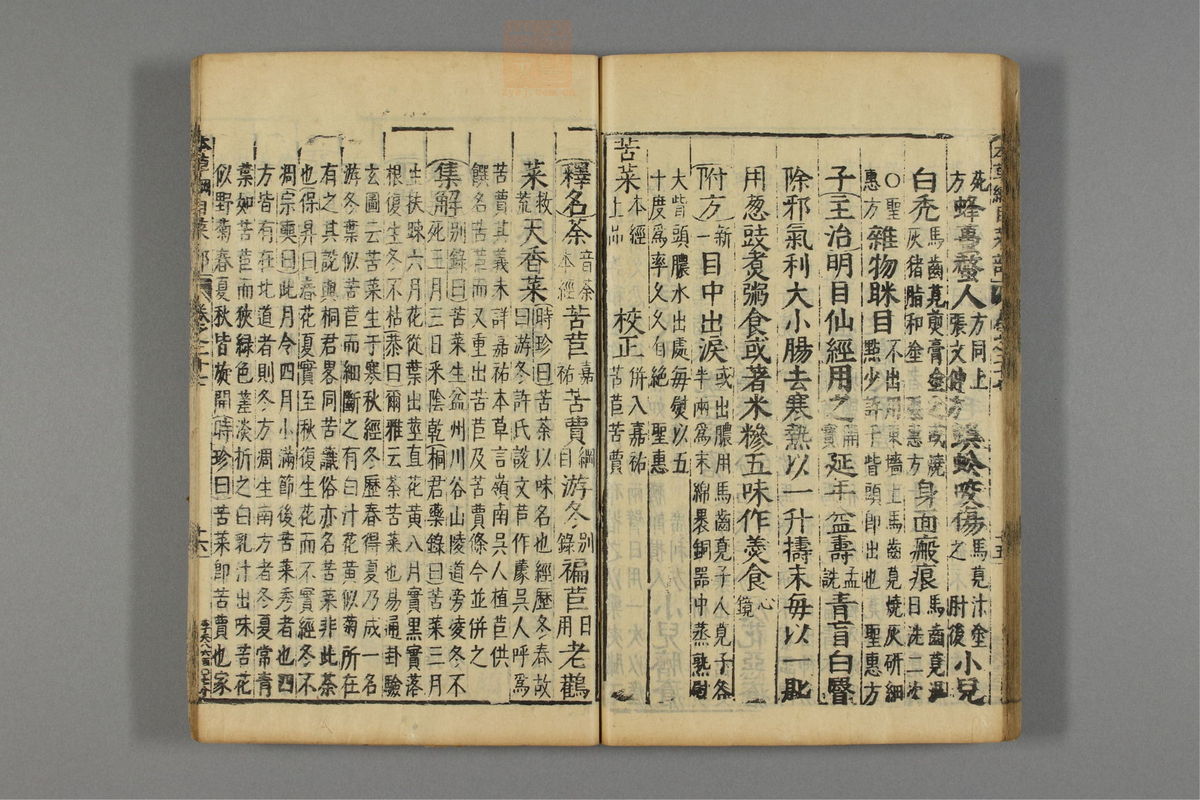 方蜂蠆螫人方同上張文仲方蜈蚣咬傷馬莧汁塗之肘後小兒
白禿馬齒莧煎膏塗之或燒灰猪脂和塗聖惠方身面瘢痕馬齒莧湯日洗二次
〇聖惠方雜物眯目不出用東墻上馬齒莧燒灰研細點少許眥頭即出也聖惠方
子主治明目仙經用之開寶延年益壽孟詵青盲白瞖
除邪氣利大小腸去寒熱以一升擣末每以一匙
用葱豉煮粥食或著米糝五味作羹食心鏡
附方新一目中出淚或出膿用馬齒莧子人莧子各半兩爲末綿裹銅器中蒸熟熨
大眥頭膿水出處每熨以五十度爲率久久自絕聖惠
苦菜本經上品校正併入嘉祐苦苣苦蕒
釋名荼音荼本經苦苣嘉祐苦蕒綱目游冬別錄褊苣日用老鸛
菜救荒天香菜時珍曰苦荼以味名也經歷冬春故曰游冬許氏說文苣作䕮吳人呼爲
苦蕒其義未詳嘉祐本草言嶺南吳人植苣供饌名苦苣而又重出苦苣及苦蕒條今並併之
集解別錄曰苦菜生益州川谷山陵道旁凌冬不死三月三日采陰乾桐君藥錄曰苦菜三月
生扶踈六月花從葉出莖直花黃八月實黑實落根復生冬不枯恭曰爾雅云荼苦菜也易通卦驗
玄圖云苦菜生于寒秋經冬歷春得夏乃成一名游冬葉似苦苣而細斷之有白汁花黃似菊所在
有之其說與桐君畧同苦蘵俗亦名苦菜非此荼也保昇曰春花夏實至秋復生花而不實經冬不
凋宗奭曰此月令四月小滿節後苦菜秀者也四方皆有在北道者則冬方凋生南方者冬夏常青
葉如苦苣而狹綠色差淡折之白乳汁出味苦花似野菊春夏秋皆旋開時珍曰苦菜即苦蕒也家